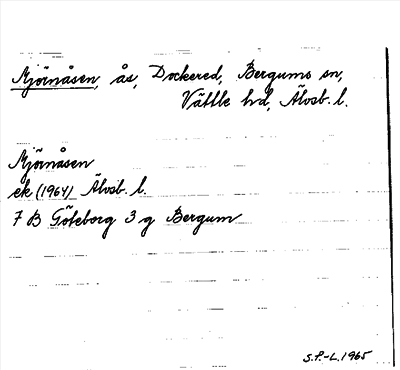 Mjörnåsen, ås, Dockered, Bergums sn,
Vättle hd, Älvsb. l.
Mjörnåsen
ek (1964) Älvsb. l.
7 B Göteborg 3 g Bergum
S.F.-L. 1965